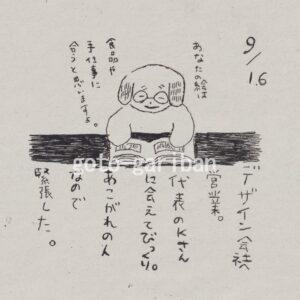 9/16
あなたの絵は
食品や
手仕事に
合うと思いますよ。
goto-gariban
デザイン会社へ
営業。
代表のKさん
に会えてびっくり。
あこがれの人
なので
緊張した。